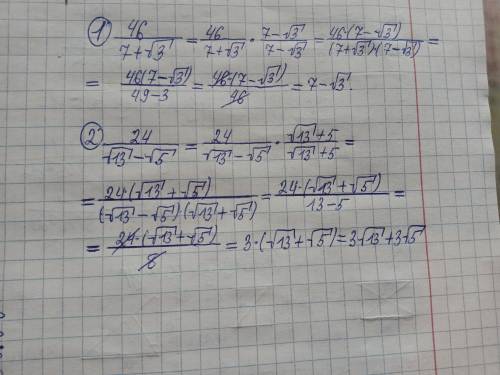 1) 46/(7+√3) = 46/(7+√3) · (7-√3)/(7-√3) = 46·(7-√3)/((7+√3)·(7-√3)) =
= 46·(7-√3)/(49-3) = 46·(7-√3)/46 = 7-√3.
2) 24/(√13-√5) = 24/(√13-√5) · (√13+5)/(√13+5) =
= 24·(√13+√5)/((√13-√5)·(√13+√5)) = 24·(√13+√5)/(13-5) =
= 24·(√13+√5)/8 = 3·(√13+√5) = 3√13+3√5